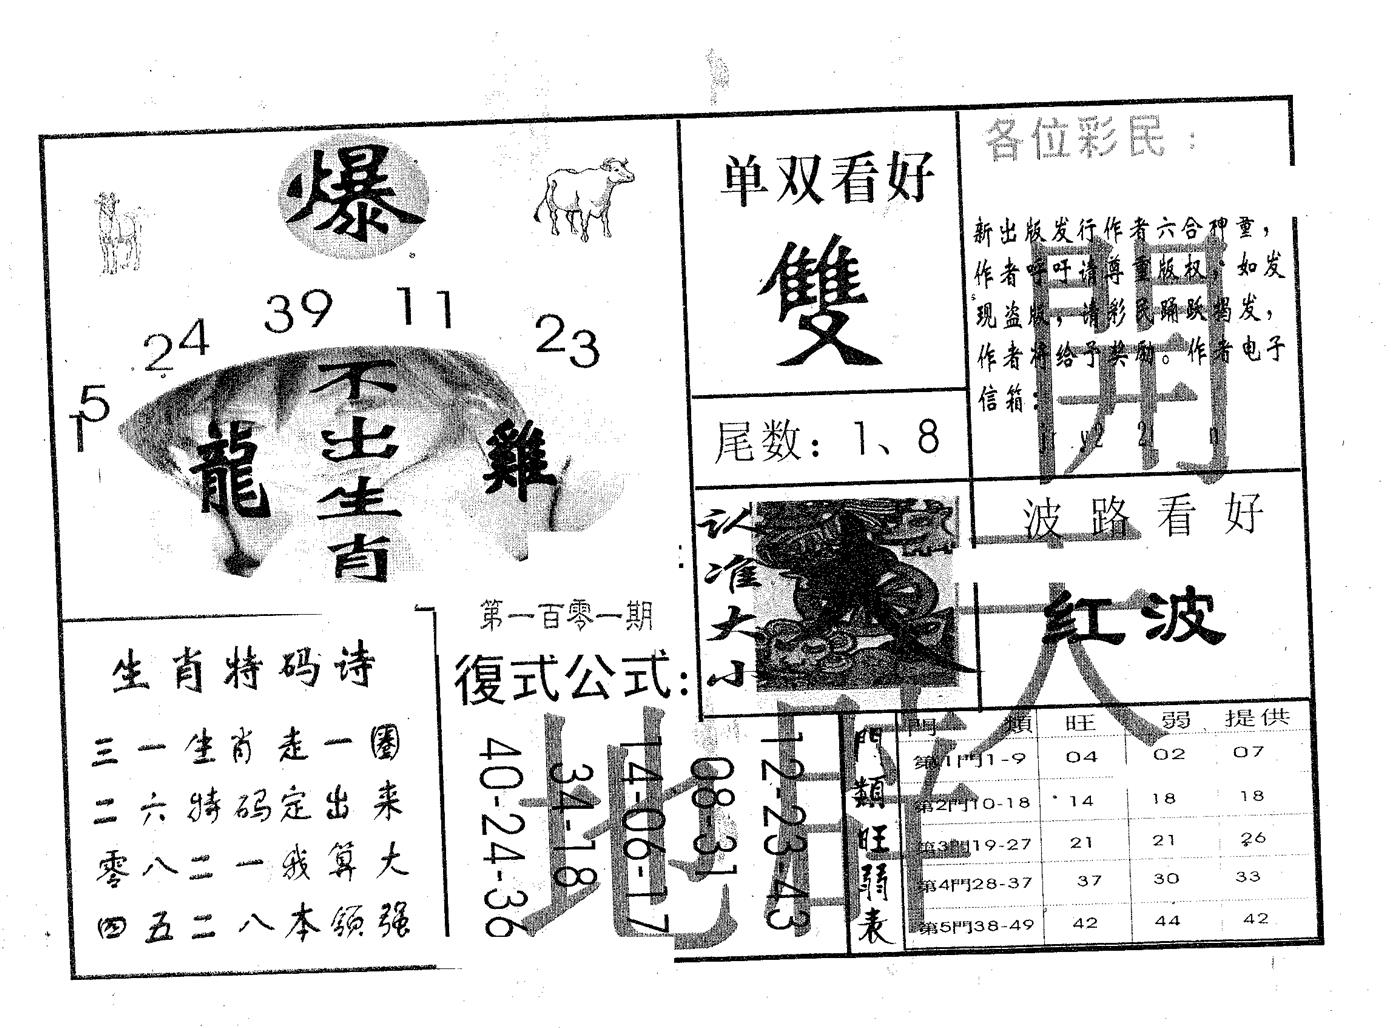 爆
15
24
39
11
23
不出生肖
龍
雞
单双看好
雙
尾数：1、8
各位彩民：
新出版发行作者六合神童，
作者呼吁请尊重版权，如发
现盗版，请彩民踊跃揭发，
作者将给予奖励。作者电子
信箱：
认准大小
波路看好
红波
生肖特码诗
三一生肖走一圈
二六特码定出来
零八二一我算大
四五二八本领强
第一百零一期
復式公式:
40-24-36
34-18
14-06-17
08-31
12-23-43
門類旺弱表
門類 旺 弱 提供
第1門1-9 04 02 07
第2門10-18 14 18 18
第3門19-27 21 21 26
第4門28-37 37 30 33
第5門38-49 42 44 42